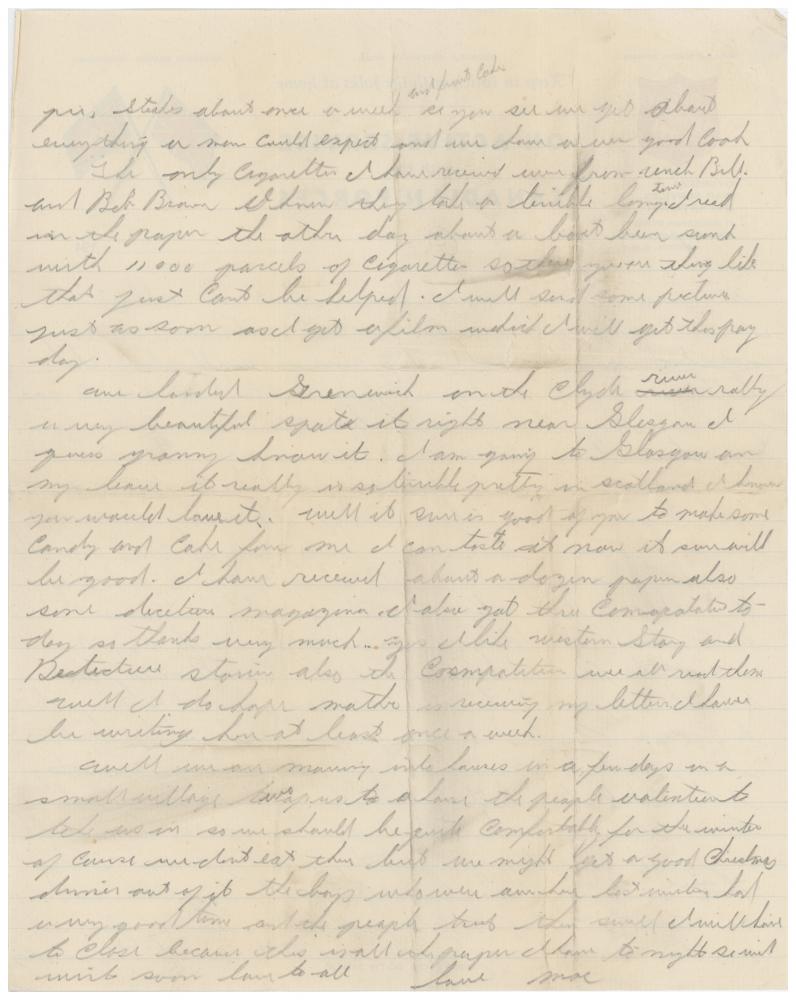 and fruit Cake
pie, Steaks about once a week so you see we get about
everything a man could expect and we have a very good Cook
The only Cigarettes I have received were from uncle Bill.
and Bob Brown I know they take a terrible long time I read
in the paper the other day about a boat been sunk
with 11000 parcels of Cigarettes so there you are thing like
that just Cant be helped. I will send some pictures
just as soon as I get a film which I will get this pay
day.
we landed Grenwich on the Clyde river ratly
a very beautiful spot it right near Glasgow I
guess granny know it. I am going to Glasgow on
my leave it really is so terrible pretty in scotland I know
you would love it. well it sure is good of you to make some
Candy and Cake for me I can taste it now it sure will
be good. I have received about a dozen paper also
some detective magazine. I also got three to-
day so thanks very much... yes I like western Story and
Dectective stories also the Cosmpoliten we all read them
well I do hope mother is receiving my letters I have
be writing her at least once a week.
well we are moving into houses in a few days in a
small village two of us to a house the people valentier to
take us in so we should be quite Comfortable for the winter
of Course we dont eat there but we might get a good Christmas
dinner out of it the boys who were here last winter had
a very good time and the people treat them swell I will have
to Close because this is all the paper I have to-night so will
write soon love to all love Moe